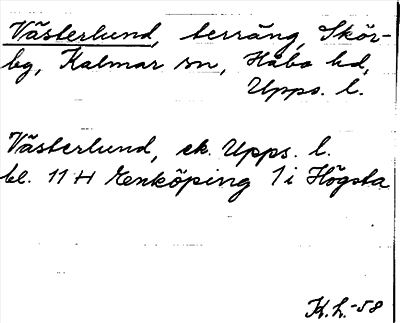 Västerlund, terräng, Skör-
bg, Kalmar sn, Håbo hd,
Upps. l.
Västerlund, ek. Upps. l.
bl. 11 H Enköping 1 i Högsta
K.h.-58